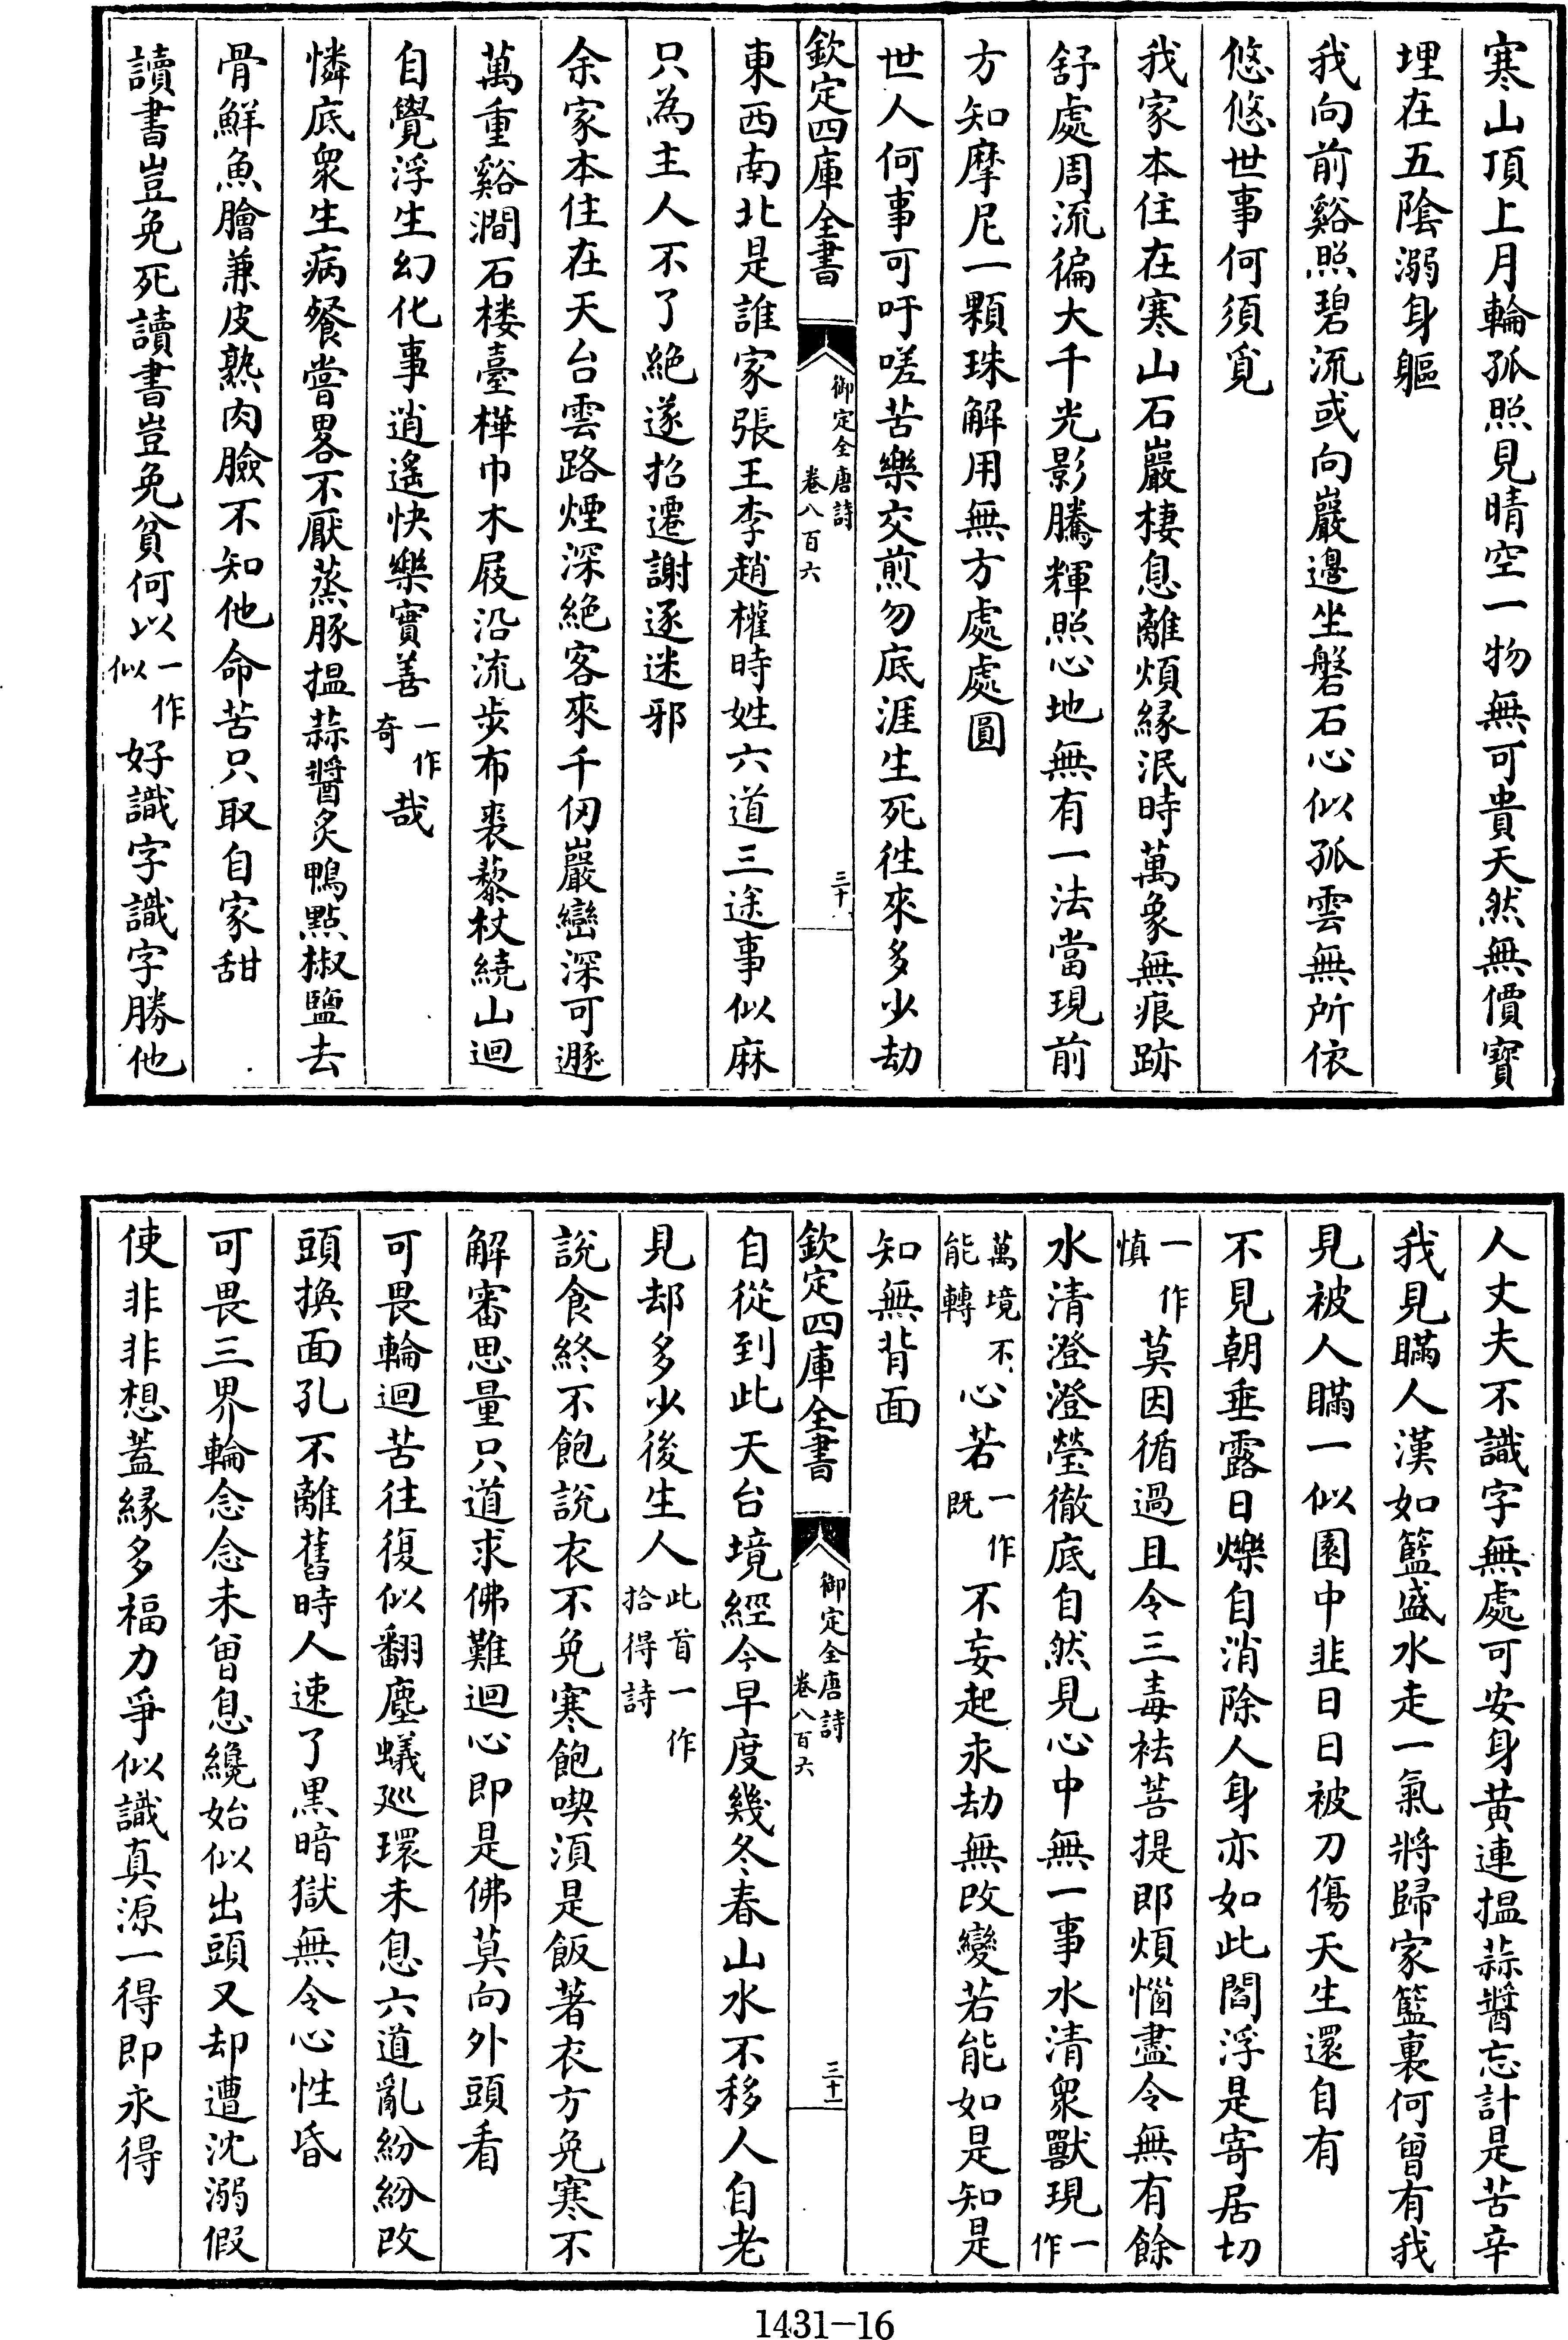 寒山頂上月輪孤照見晴空一物無可貴天然無價寶
埋在五陰溺身軀
我向前谿照碧流或向巖邊坐磐石心似孤雲無所依
悠悠世事何須覓
我家本住在寒山石巖棲息離煩緣泯時萬象無痕跡
舒處周流徧大千光影騰輝照心地無有一法當現前
方知摩尼一顆珠解用無方處處圓
世人何事可吁嗟苦樂交煎勿底涯生死往來多少劫
欽定四庫全書
御定全唐詩
卷八百六
三十
東西南北是誰家張王李趙權時姓六道三途事似麻
只為主人不了絕遂招遷謝逐迷邪
余家本住在天台雲路煙深絕客來千仞巖巒深可遯
萬重谿澗石楼臺樺巾木屐沿流步布裘藜杖繞山迴
自覺浮生幻化事逍遙快樂實善一作奇哉
憐底衆生病餐嘗畧不厭蒸豚搵蒜醬炙鴨點椒鹽去
骨鮮魚膾兼皮熟肉臉不知他命苦只取自家甜
讀書豈免死讀書豈免貧何以一作似好識字識字勝他
人丈夫不識字無處可安身黃連搵蒜醬忘計是苦辛
我見瞞人漢如籃盛水走一氣將歸家籃裏何曾有我
見被人瞞一似園中韭日日被刀傷天生還自有
不見朝垂露日爍自消除人身亦如此閻浮是寄居切
一作慎莫因循過且令三毒袪菩提即煩惱盡令無有餘
水清澄澄瑩徹底自然見心中無一事水清衆獸現一作
萬境不能轉心若一作既不妄起永劫無改變若能如是知是
知無背面
欽定四庫全書
御定全唐詩
卷八百六
三十一
自從到此天台境經今早度幾冬春山水不移人自老
見却多少後生人此首一作拾得詩
說食終不飽說衣不免寒飽喫須是飯著衣方免寒不
解審思量只道求佛難迴心即是佛莫向外頭看
可畏輪迴苦往復似翻塵蟻巡環未息六道亂紛紛改
頭換面孔不離舊時人速了黑暗獄無令心性昏
可畏三界輪念念未曾息纔始似出頭又却遭沈溺假
使非非想蓋緣多福力爭似識真源一得即永得
1431-16